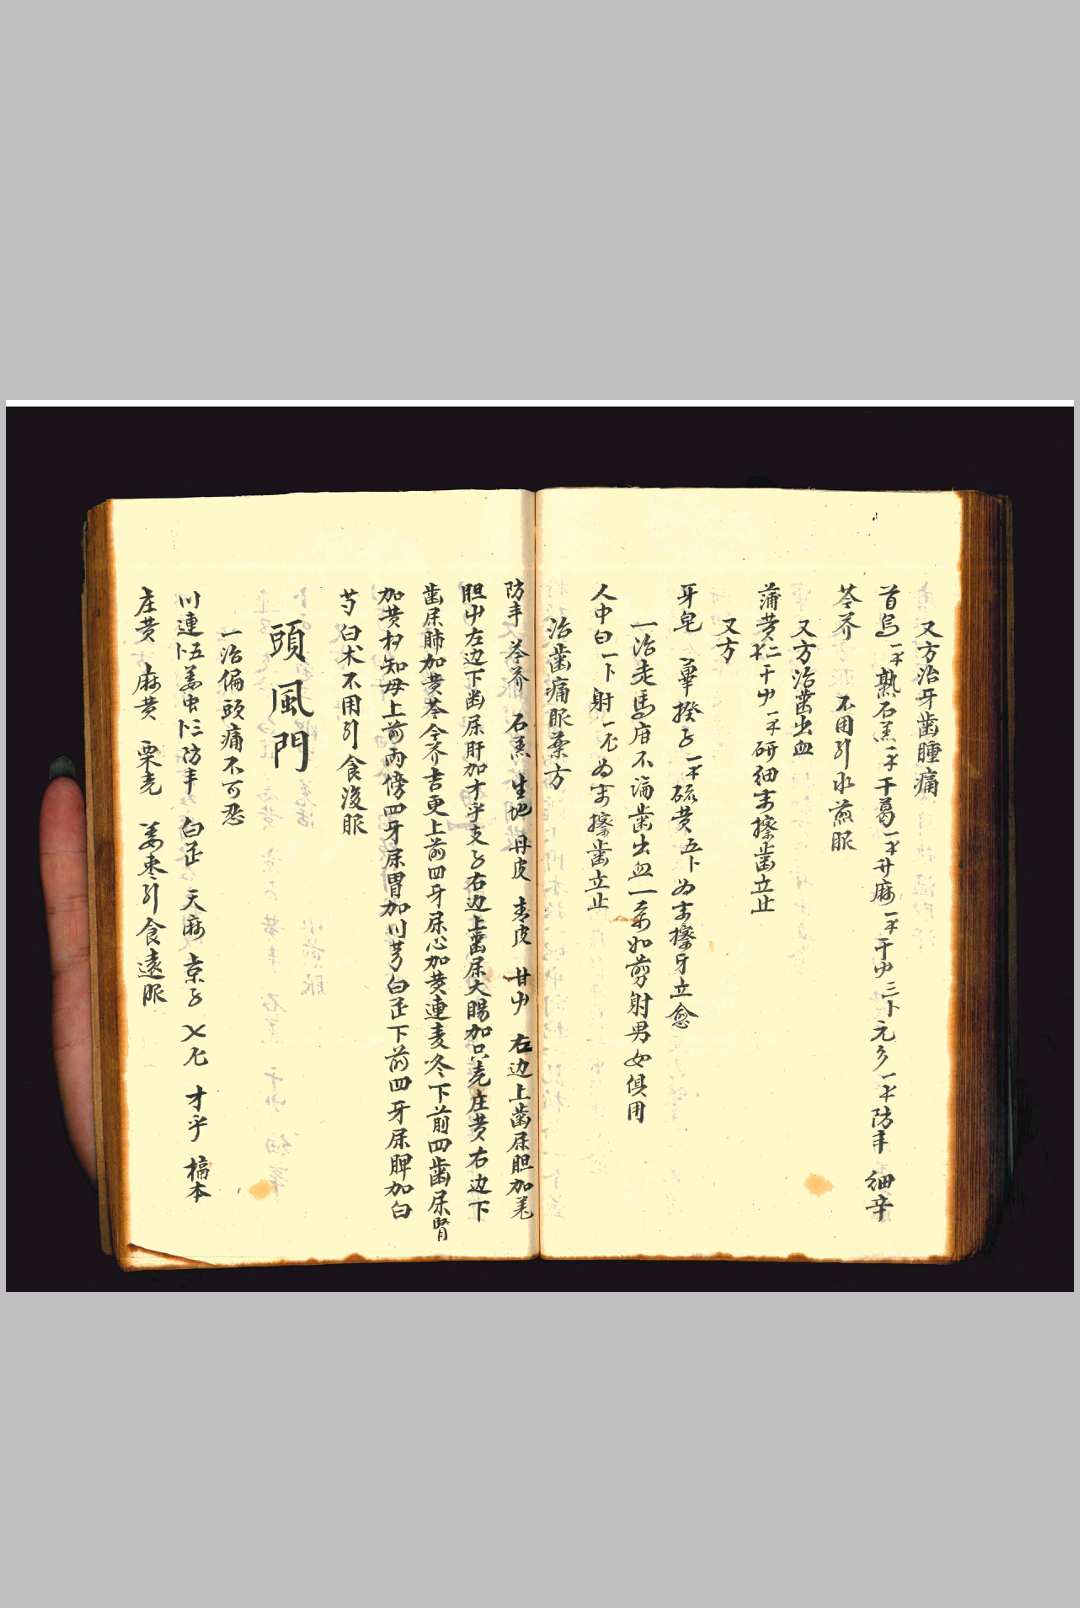 又方治牙齒腫痛
首烏 熟石羔 干葛 升麻 干中三卜元參 防丰 細辛
苓芥 不用引水煎服
又方治齒出血
蒲黄 干中 研細末擦齒立止
又方
牙皂 華揆子 硫黄五卜为末擦牙立愈
一治走馬疳不論齒出血一条如剪射男女俱用
人中白一卜射一 为末擦齒立止
治齒痛服藥方
防丰 苓芥 石羔 生地 丹皮 青皮 甘中 右边上齒屎胆加羌
胆中左边下齒屎肝加才乎支子右边上齒屎大腸加只壳庄黄右边下
齒屎肺加黄苓令芥吉更上前四牙屎心加黄連麦冬下前四齒屎腎
加黄 知母上前兩傍四牙屎胃加川芎白芷下前四牙屎脾加白
芍白术不用引食後服
頭風門
一治偏頭痛不可忍
川連卜五姜虫卜三防丰 白芷 天麻 京子 才乎 槁本
庄黄 麻黄 栗壳 姜枣引食遠服